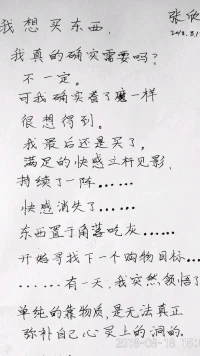 我想买东西，
张欣
我真的确实需要吗？
不一定。
可我确实着了魔一样
很想得到。
我最后还是买了。
满足的快感立杆见影，
持续了一阵……
快感消失了……
东西置于角落吃灰……
开始寻找下一个购物目标……
……有一天，我突然领悟了
单纯的靠物质，是无法真正
弥补自己心灵上的洞的。